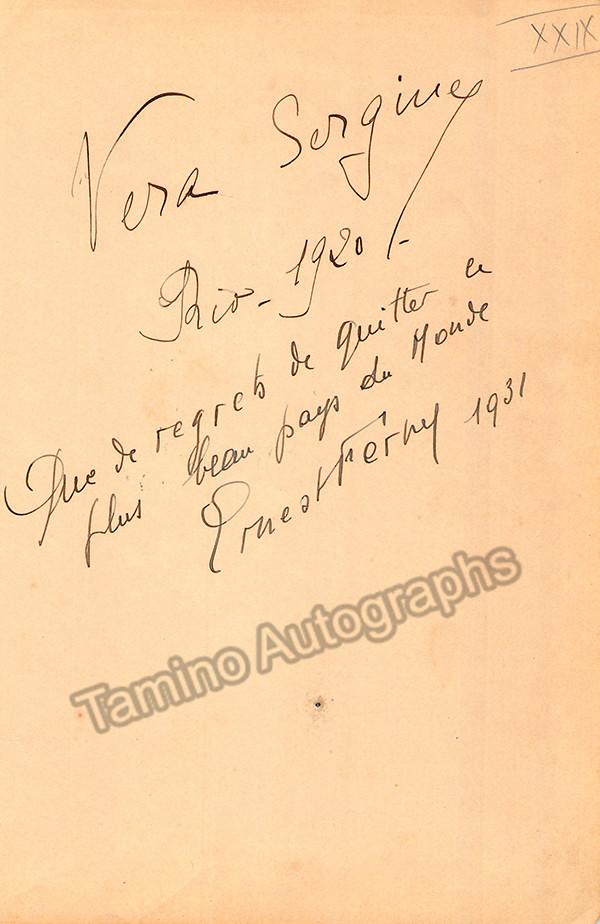 XXIX
Vera Sergine
Rio - 1920 -
Que de regrets de quitter le
plus beau pays du Monde
Ernest Ferny 1931
Tamino Autographs